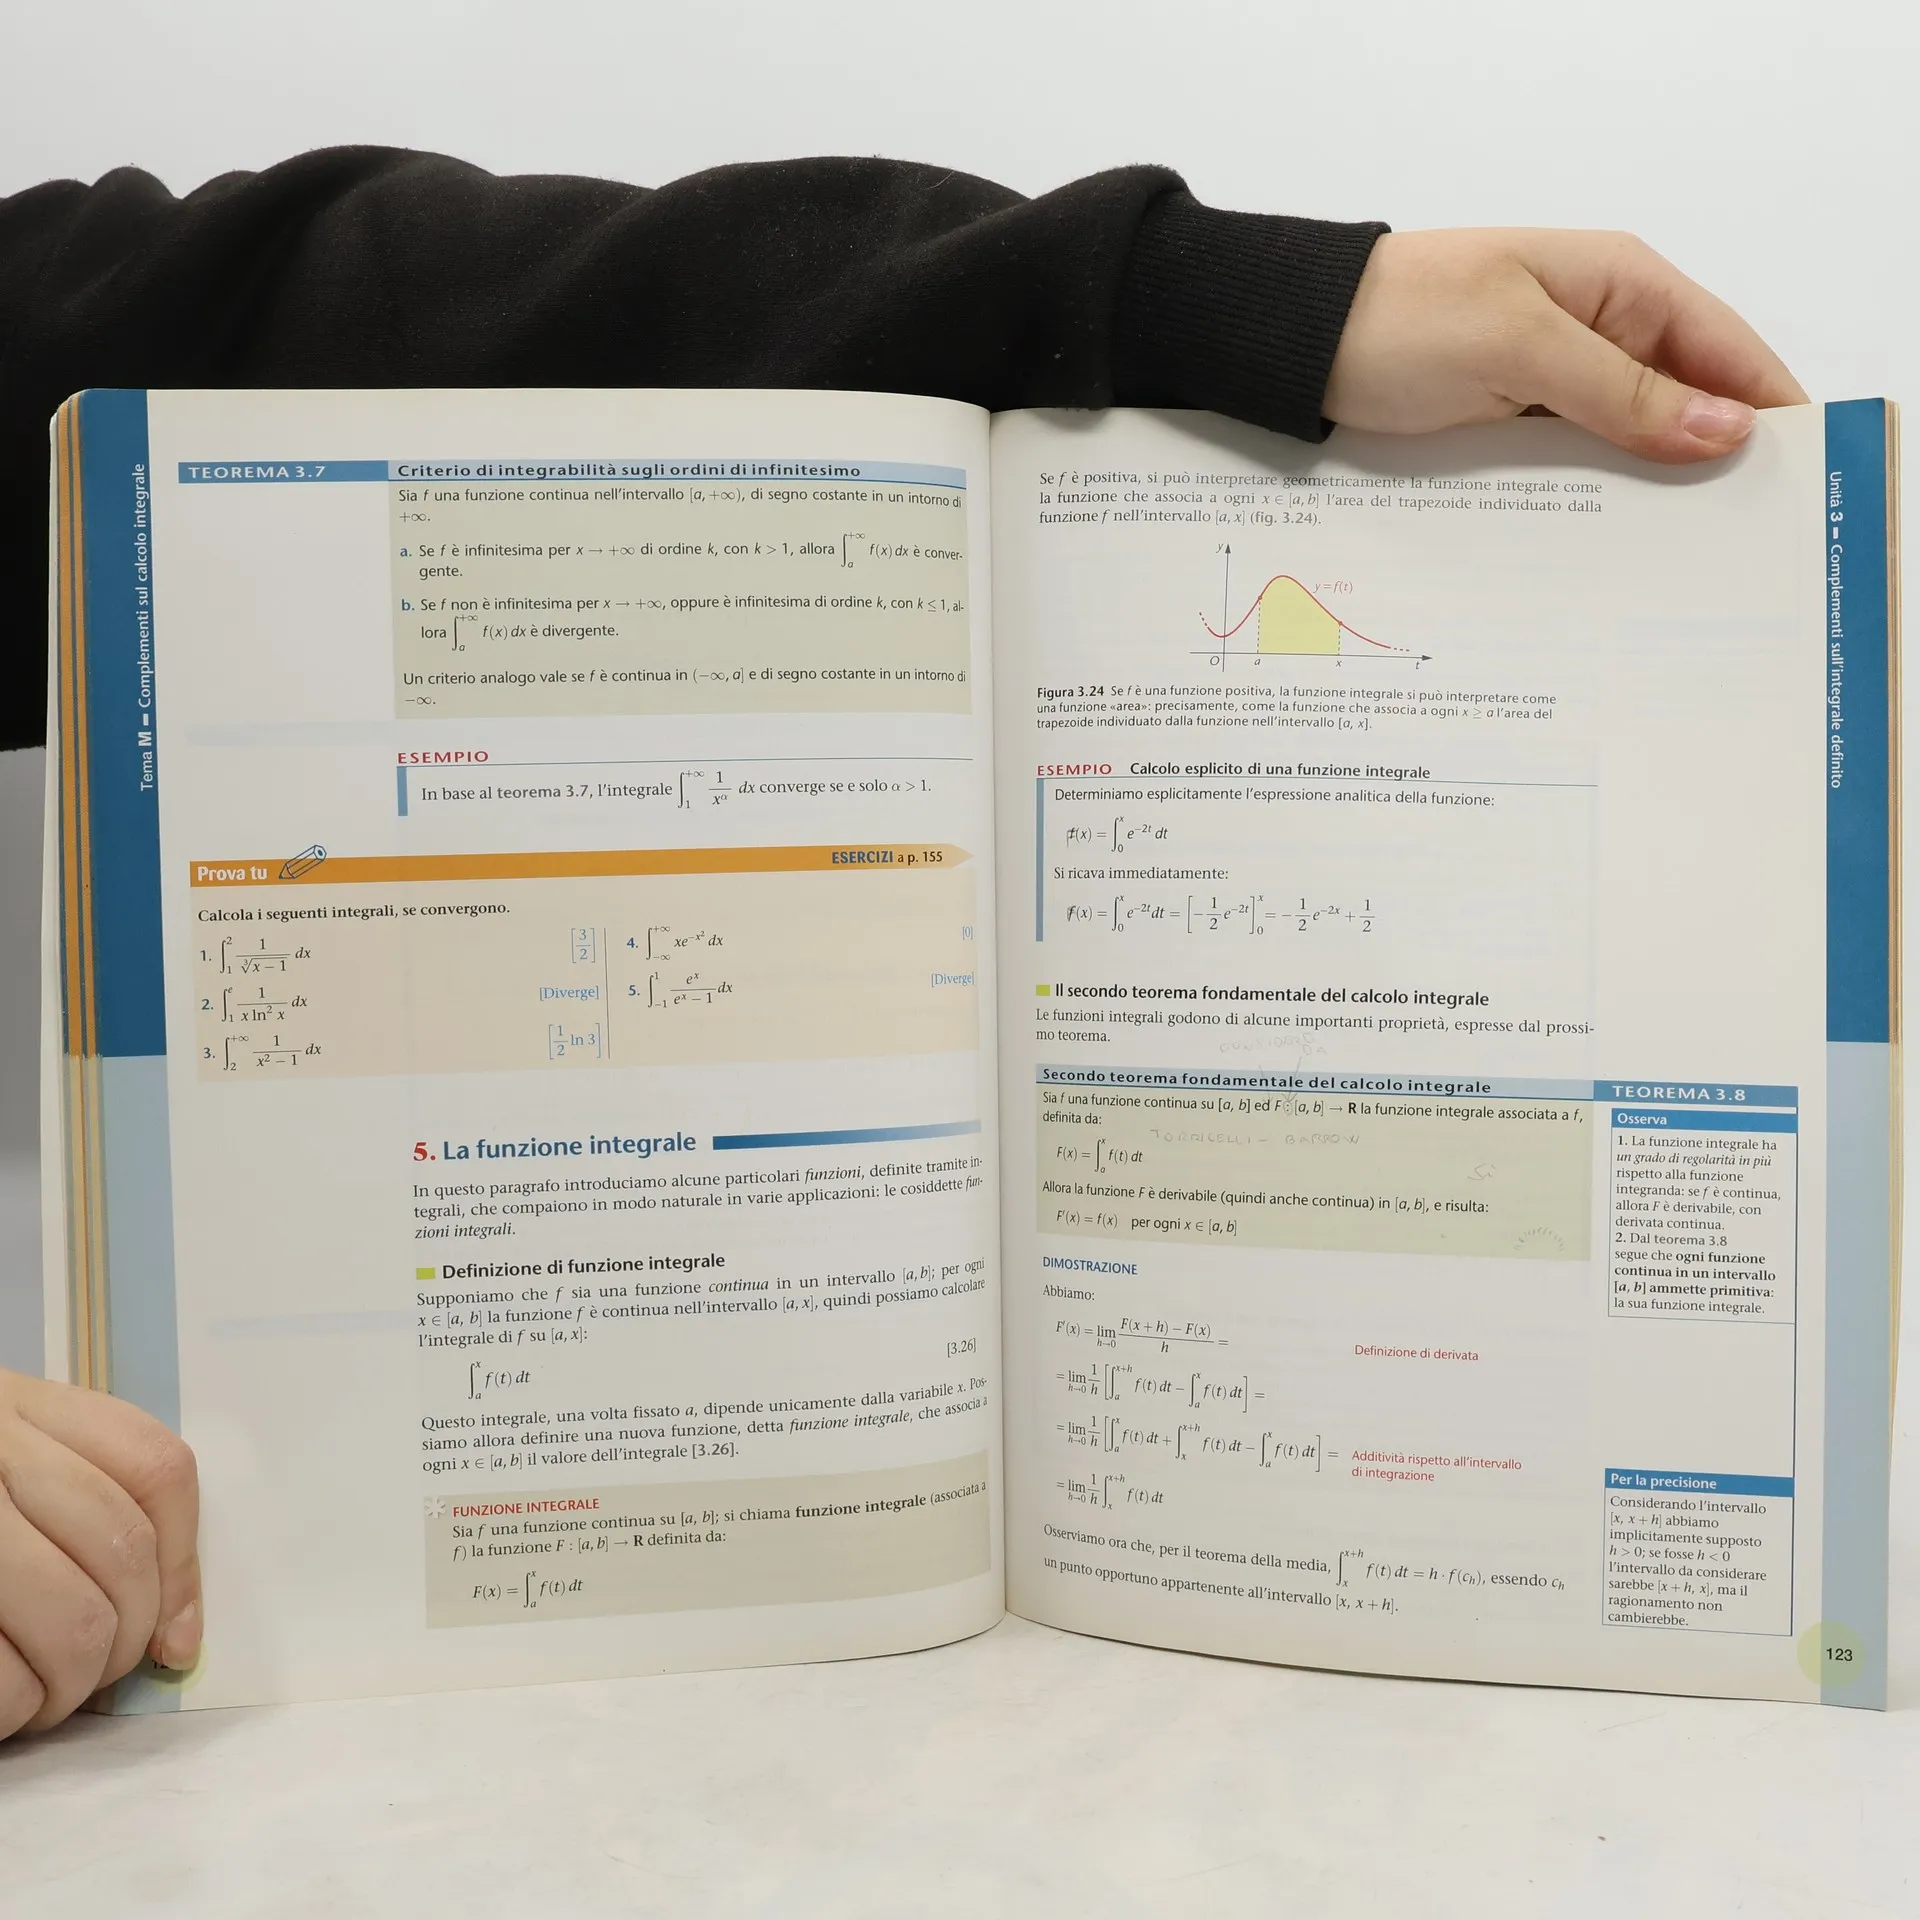 Tema M Complementi sul calcolo integrale
TEOREMA 3.7
Criterio di integrabilità sugli ordini di infinitesimo
Sia f una funzione continua nell'intervallo [a, +∞), di segno costante in un intorno di
+∞.
a. Se f è infinitesima per x → +∞ di ordine k, con k > 1, allora ∫_a^{+∞} f(x) dx è conver-
gente.
b. Se f non è infinitesima per x → +∞, oppure è infinitesima di ordine k, con k ≤ 1, al-
lora ∫_a^{+∞} f(x) dx è divergente.
Un criterio analogo vale se f è continua in (−∞, a] e di segno costante in un intorno di
−∞.
ESEMPIO
In base al teorema 3.7, l'integrale ∫_1^{+∞} 1/x^α dx converge se e solo α > 1.
Prova tu
ESERCIZI a p. 155
Calcola i seguenti integrali, se convergono.
1. ∫_1^2 1/∛(x − 1) dx [3/2]
2. ∫_1^e 1/(x ln² x) dx [Diverge]
3. ∫_2^{+∞} 1/(x² − 1) dx [1/2 ln 3]
4. ∫_{−∞}^{+∞} xe^{−x²} dx [0]
5. ∫_{−1}^1 e^x/(e^x − 1) dx [Diverge]
5. La funzione integrale
In questo paragrafo introduciamo alcune particolari funzioni, definite tramite in-
tegrali, che compaiono in modo naturale in varie applicazioni: le cosiddette fun-
zioni integrali.
Definizione di funzione integrale
Supponiamo che f sia una funzione continua in un intervallo [a, b]; per ogni
x ∈ [a, b] la funzione f è continua nell'intervallo [a, x], quindi possiamo calcolare
l'integrale di f su [a, x]:
∫_a^x f(t) dt [3.26]
Questo integrale, una volta fissato a, dipende unicamente dalla variabile x. Pos-
siamo allora definire una nuova funzione, detta funzione integrale, che associa a
ogni x ∈ [a, b] il valore dell'integrale [3.26].
FUNZIONE INTEGRALE
Sia f una funzione continua su [a, b]; si chiama funzione integrale (associata a
f) la funzione F : [a, b] → R definita da:
F(x) = ∫_a^x f(t) dt
Unità 3 Complementi sull'integrale definito
Se f è positiva, si può interpretare geometricamente la funzione integrale come
la funzione che associa a ogni x ∈ [a, b] l'area del trapezoide individuato dalla
funzione f nell'intervallo [a, x] (fig. 3.24).
y
y = f(t)
O a x t
Figura 3.24 Se f è una funzione positiva, la funzione integrale si può interpretare come
una funzione «area»: precisamente, come la funzione che associa a ogni x ≥ a l'area del
trapezoide individuato dalla funzione nell'intervallo [a, x].
ESEMPIO Calcolo esplicito di una funzione integrale
Determiniamo esplicitamente l'espressione analitica della funzione:
F(x) = ∫_0^x e^{−2t} dt
Si ricava immediatamente:
F(x) = ∫_0^x e^{−2t} dt = [−1/2 e^{−2t}]_0^x = −1/2 e^{−2x} + 1/2
Il secondo teorema fondamentale del calcolo integrale
Le funzioni integrali godono di alcune importanti proprietà, espresse dal prossi-
mo teorema.
Secondo teorema fondamentale del calcolo integrale
TEOREMA 3.8
Sia f una funzione continua su [a, b] ed F : [a, b] → R la funzione integrale associata a f,
definita da:
TORRICELLI - BARROW
F(x) = ∫_a^x f(t) dt
Si
Allora la funzione F è derivabile (quindi anche continua) in [a, b], e risulta:
F'(x) = f(x) per ogni x ∈ [a, b]
Osserva
1. La funzione integrale ha
un grado di regolarità in più
rispetto alla funzione
integranda: se f è continua,
allora F è derivabile, con
derivata continua.
2. Dal teorema 3.8
segue che ogni funzione
continua in un intervallo
[a, b] ammette primitiva:
la sua funzione integrale.
DIMOSTRAZIONE
Abbiamo:
F'(x) = lim_{h→0} (F(x + h) − F(x))/h = Definizione di derivata
= lim_{h→0} 1/h [∫_a^{x+h} f(t) dt − ∫_a^x f(t) dt] =
= lim_{h→0} 1/h [∫_a^x f(t) dt + ∫_x^{x+h} f(t) dt − ∫_a^x f(t) dt] = Additività rispetto all'intervallo
di integrazione
= lim_{h→0} 1/h ∫_x^{x+h} f(t) dt
Osserviamo ora che, per il teorema della media, ∫_x^{x+h} f(t) dt = h · f(c_h), essendo c_h
un punto opportuno appartenente all'intervallo [x, x + h].
Per la precisione
Considerando l'intervallo
[x, x + h] abbiamo
implicitamente supposto
h > 0; se fosse h < 0
l'intervallo da considerare
sarebbe [x + h, x], ma il
ragionamento non
cambierebbe.
123